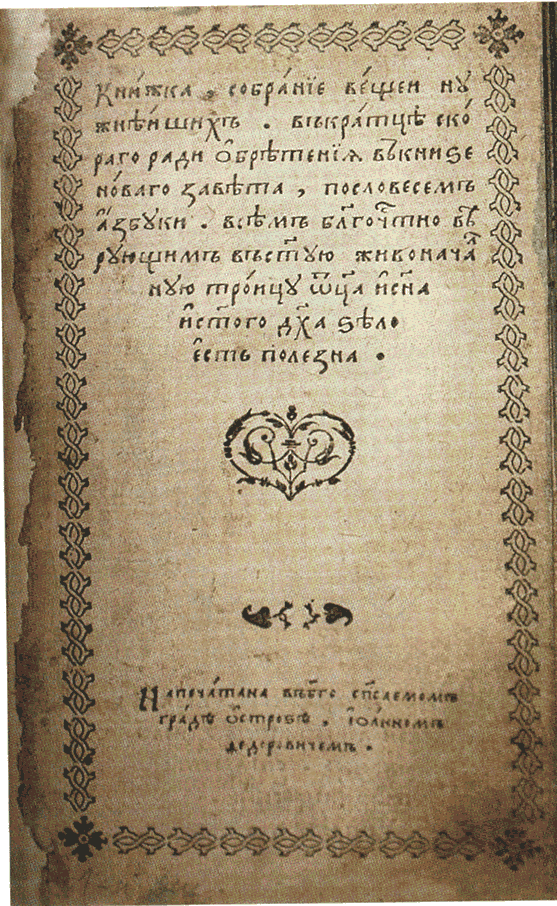 Кни́жка , собра́нїе ве́щеи ну
жнѣ́ишихъ . въкра́тцѣ ско́
раго ради ѻ҆брѣ́тенїѧ въкнизе
но́ваго завѣ́та , пословесемъ
а҆́збꙋки . всѣ́мъ бл҃гоч҇тно вѣ́
рꙋющимъ въст҃ꙋю живонача́л
нꙋю тро́ицꙋ ѿц҃а и҆сн҃а
и҆ст҃ого дх҃а ѕѣло
е҆сть полезна .
Напеча́тана въбг҃о сп҃саемомъ
гра́дѣ ѻ҆стрѡзѣ , і҆ѡа́нномъ
ѳедоровичемъ .